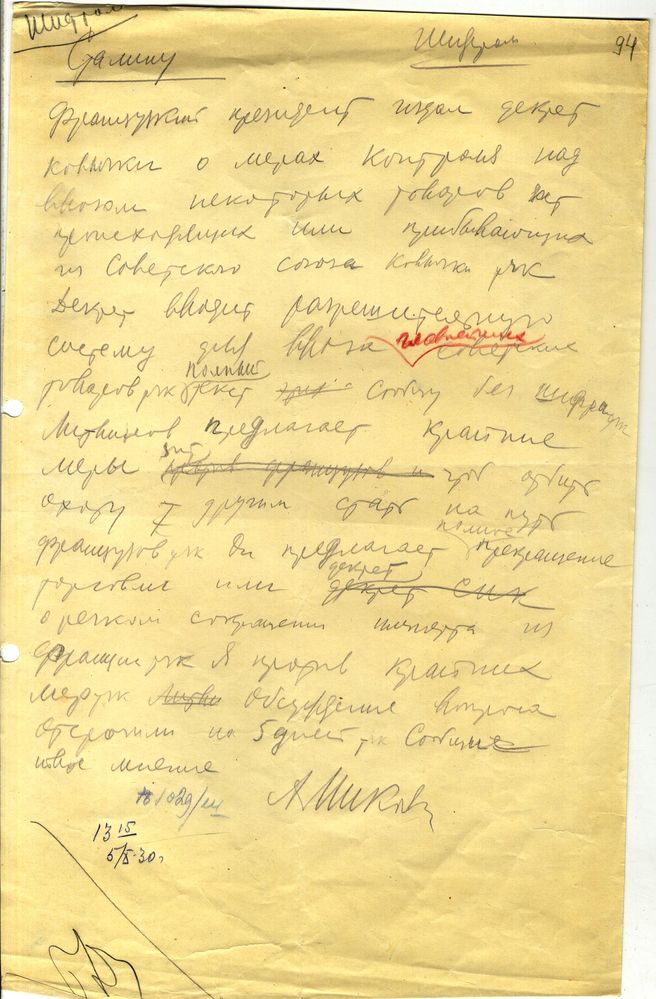 Шифром
Шифром
94
Сталину
Французский президент издал декрет
кавычки о мерах контроля над
ввозом некоторых товаров зпт
происходящих или прибывающих
из Советского союза кавычки тчк
Декрет вводит разрешительную
главнейших
систему для ввоза советских
полный
товаров тчк Текст сообщу без шифра тчк
Литвинов предлагает крайние
зпт
меры против французов и чтоб отбить
охоту другим стать на путь
полное
французов тчк Он предлагает прекращение
декрет
торговли или декрет СНК
о резком сокращении импорта из
Франции тчк Я против крайних
мер тчк Литви Обсуждение вопроса
отсрочили на 5 дней тчк Сообщи
твое мнение
А. Микоян
№ 1029/ш
13 15
5/X-30 г